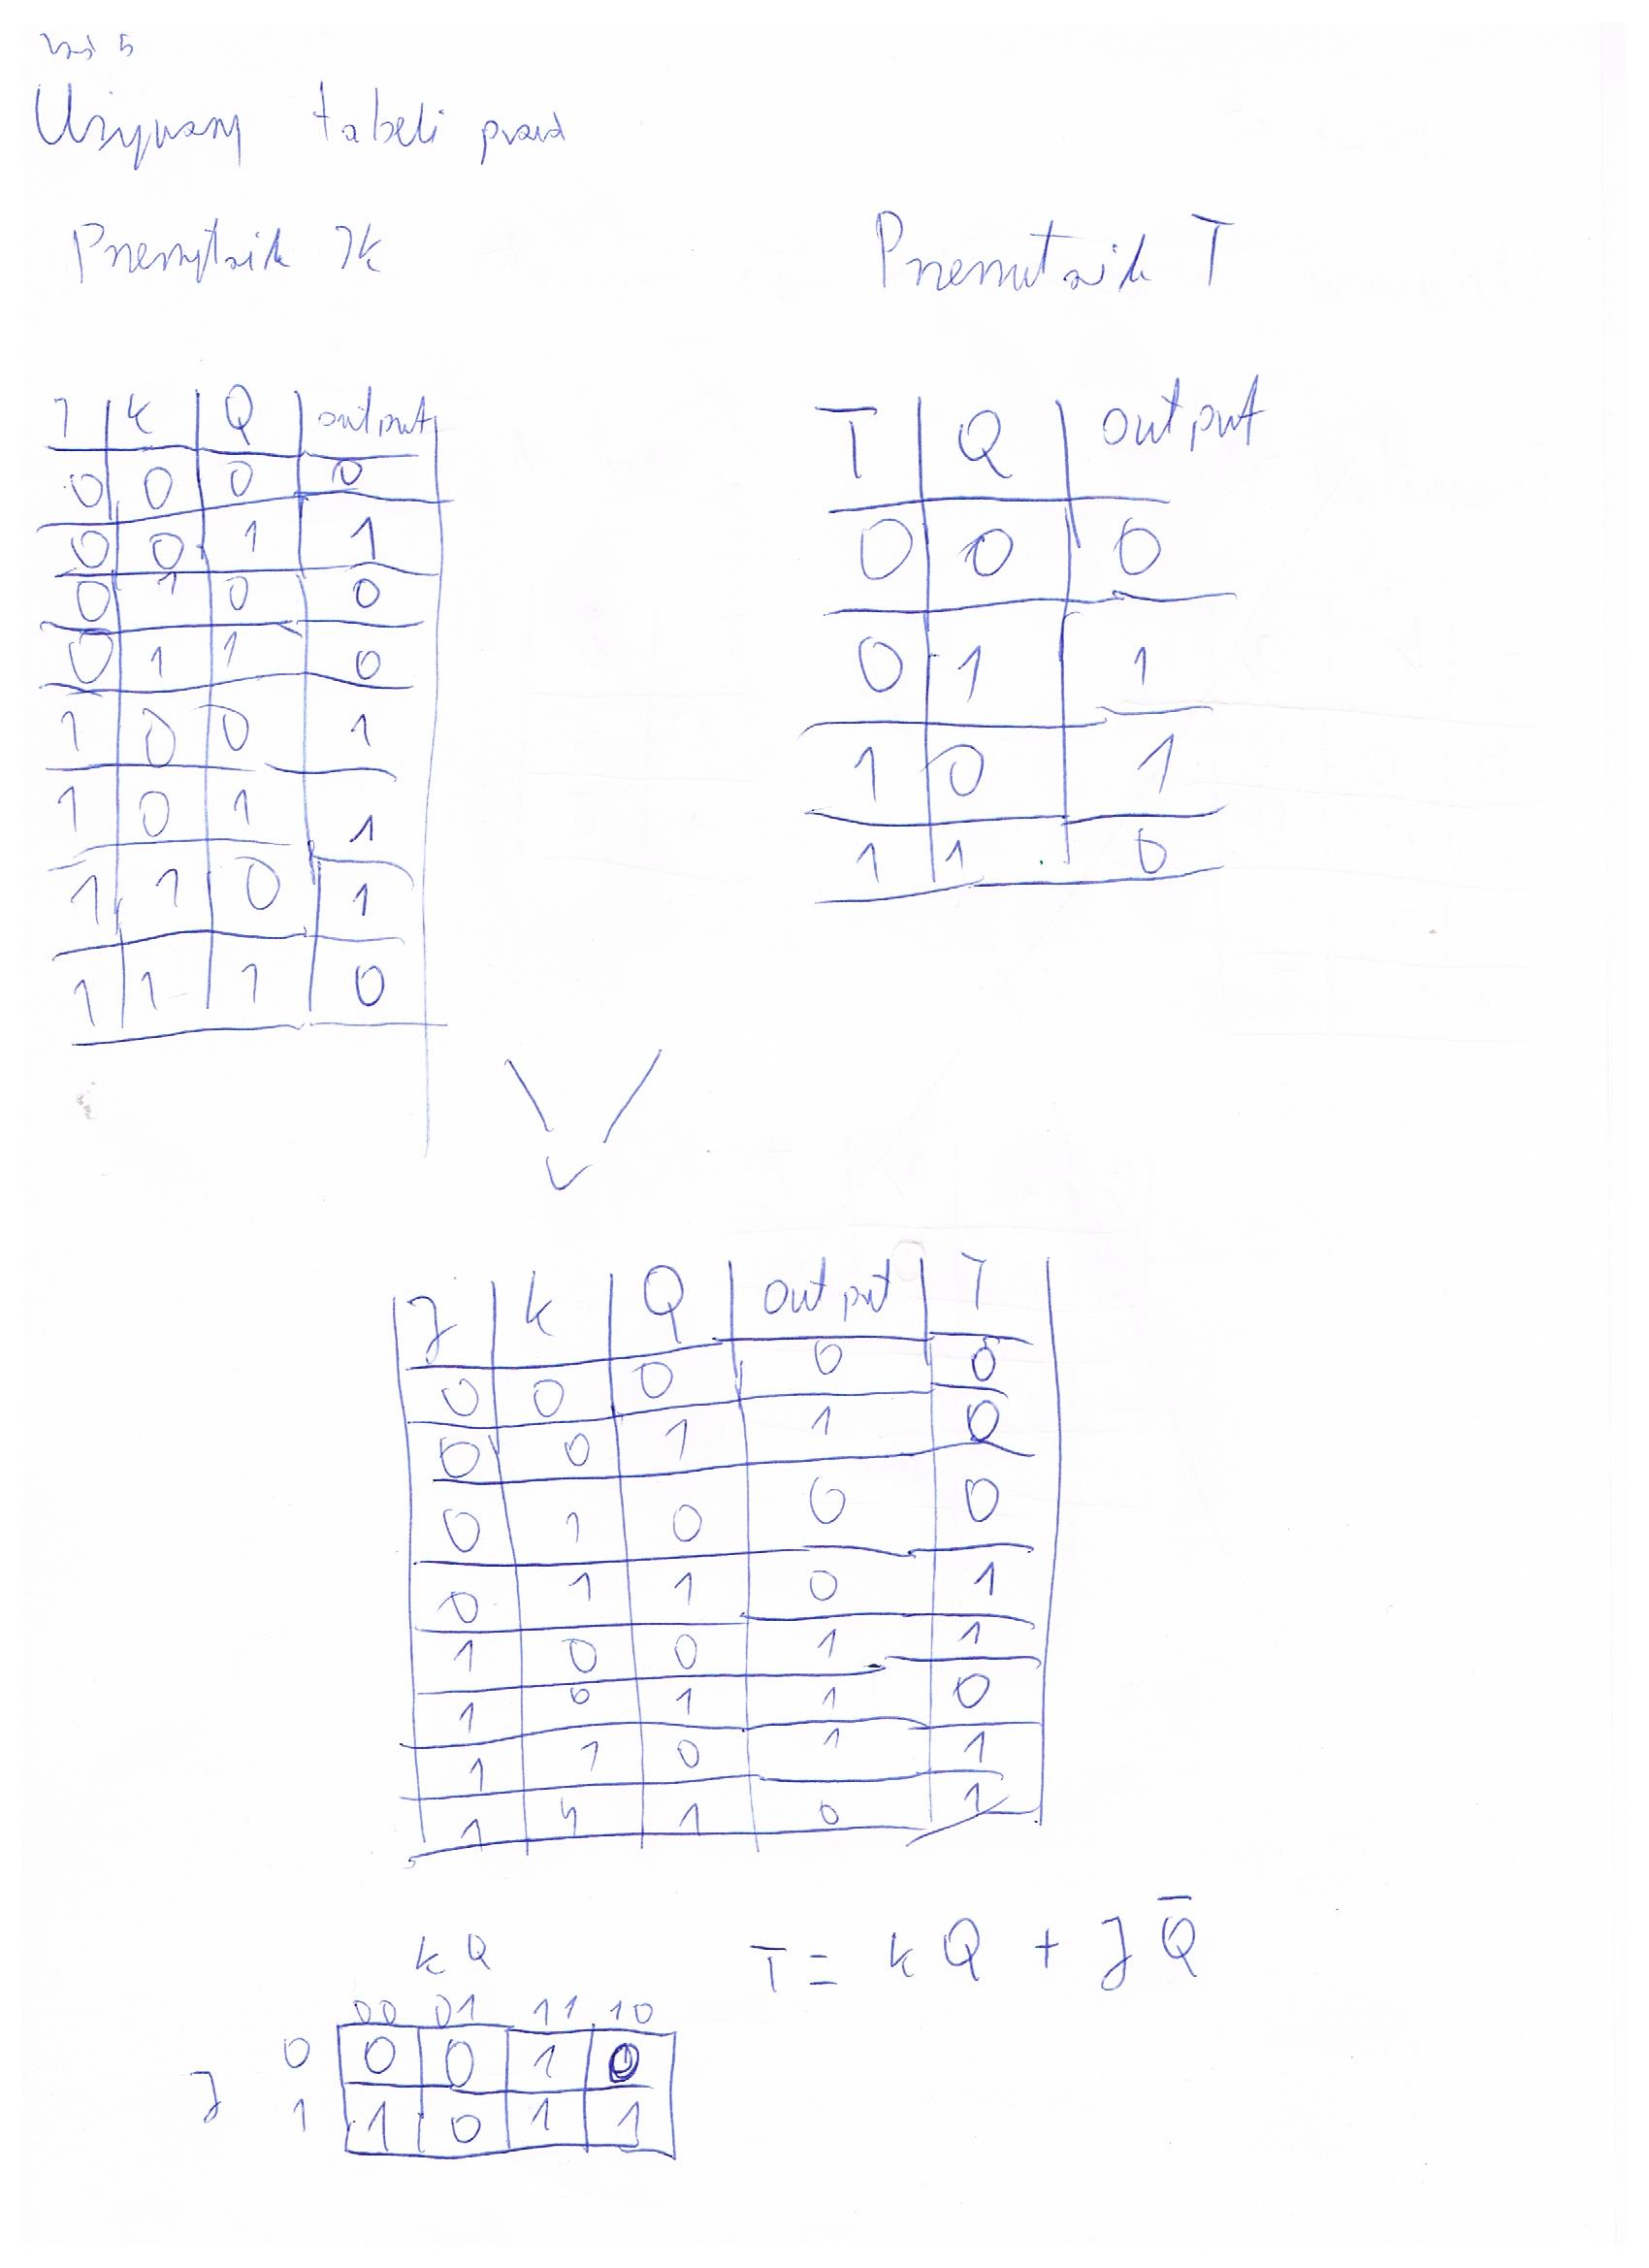 zad 5
Używamy tabeli prawd
Przerzutnik JK
Przerzutnik T
J K Q output
0 0 0 0
0 0 1 1
0 1 0 0
0 1 1 0
1 0 0 1
1 0 1 1
1 1 0 1
1 1 1 0
T Q output
0 0 0
0 1 1
1 0 1
1 1 0
J K Q output T
0 0 0 0 0
0 0 1 1 0
0 1 0 0 0
0 1 1 0 1
1 0 0 1 1
1 0 1 1 0
1 1 0 1 1
1 1 1 0 1
T = KQ + JQ̅
KQ
00 01 11 10
0 0 0 1 0
J
1 1 0 1 1